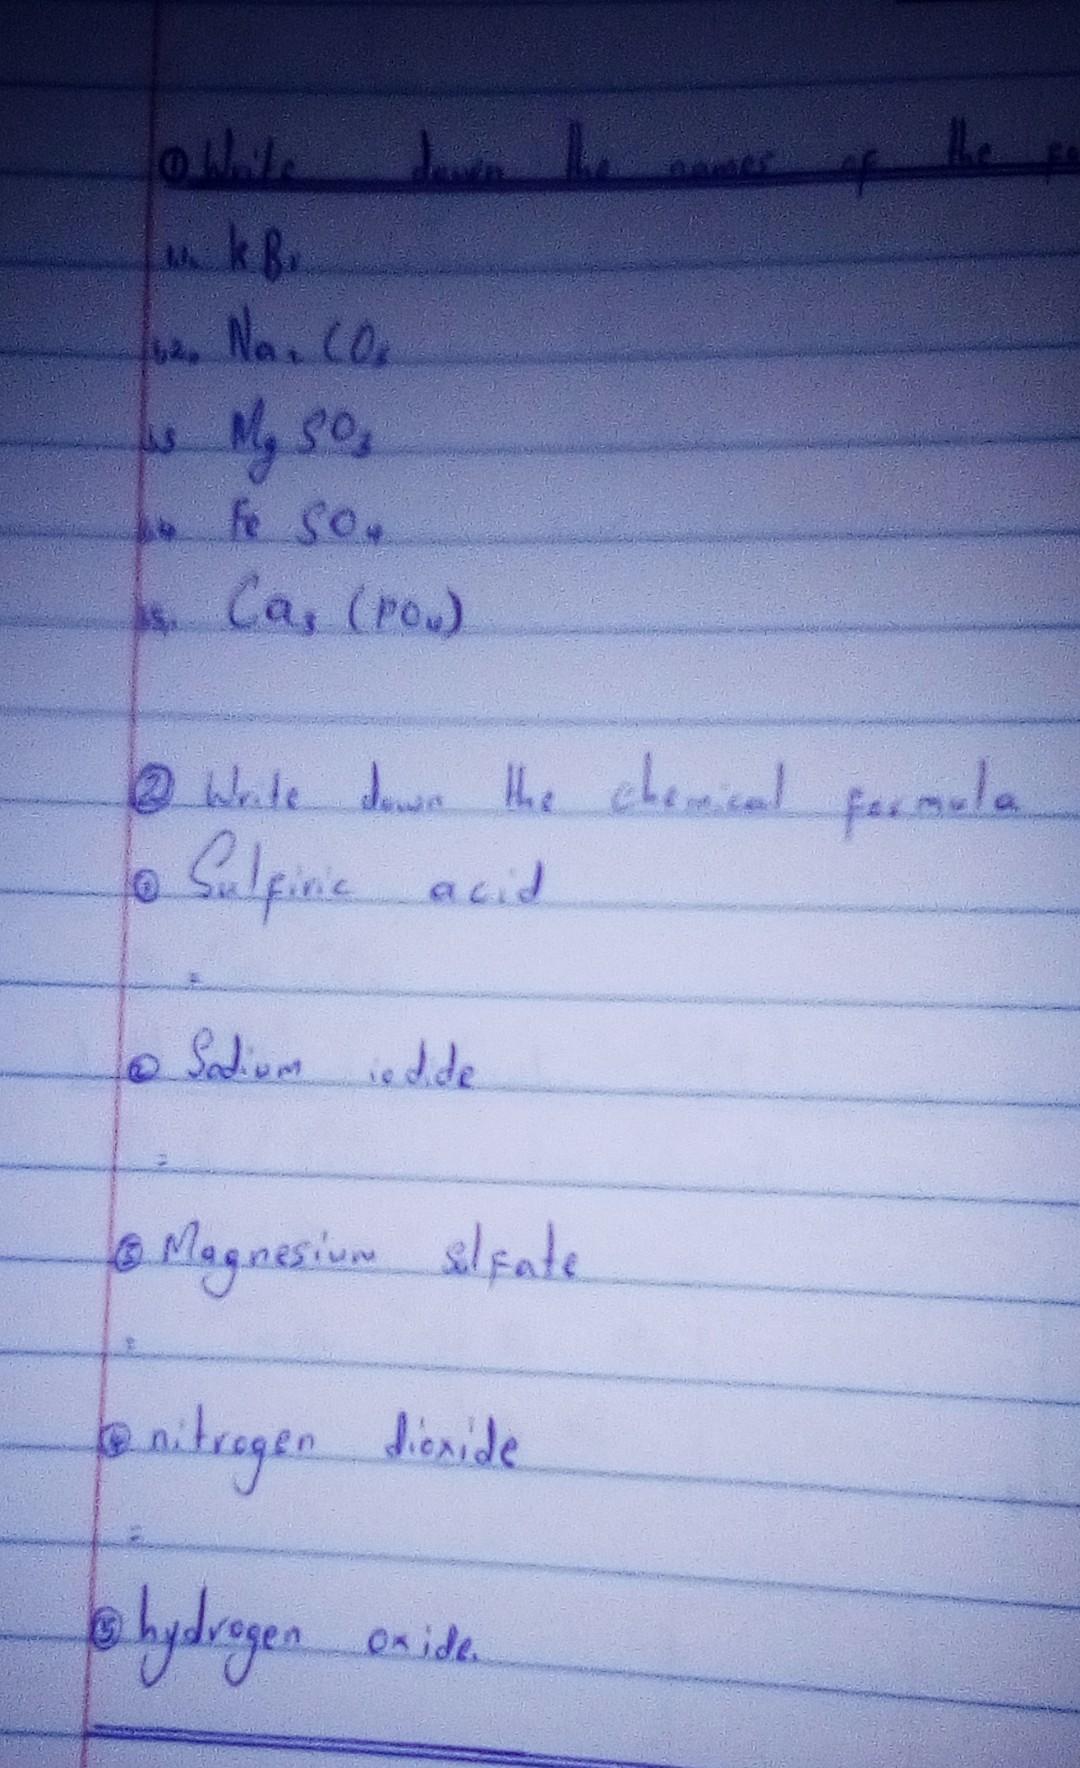 ① Write down the names of the
1.1. KBr
1.2. Na₂ CO₃
1.3 Mg SO₃
1.4 Fe SO₄
1.5. Ca₃ (PO₄)
② Write down the chemical formula
① Sulfiric acid
=
② Sodium iodide
=
③ Magnesium sulfate
=
④ nitrogen dioxide
=
⑤ hydrogen oxide.